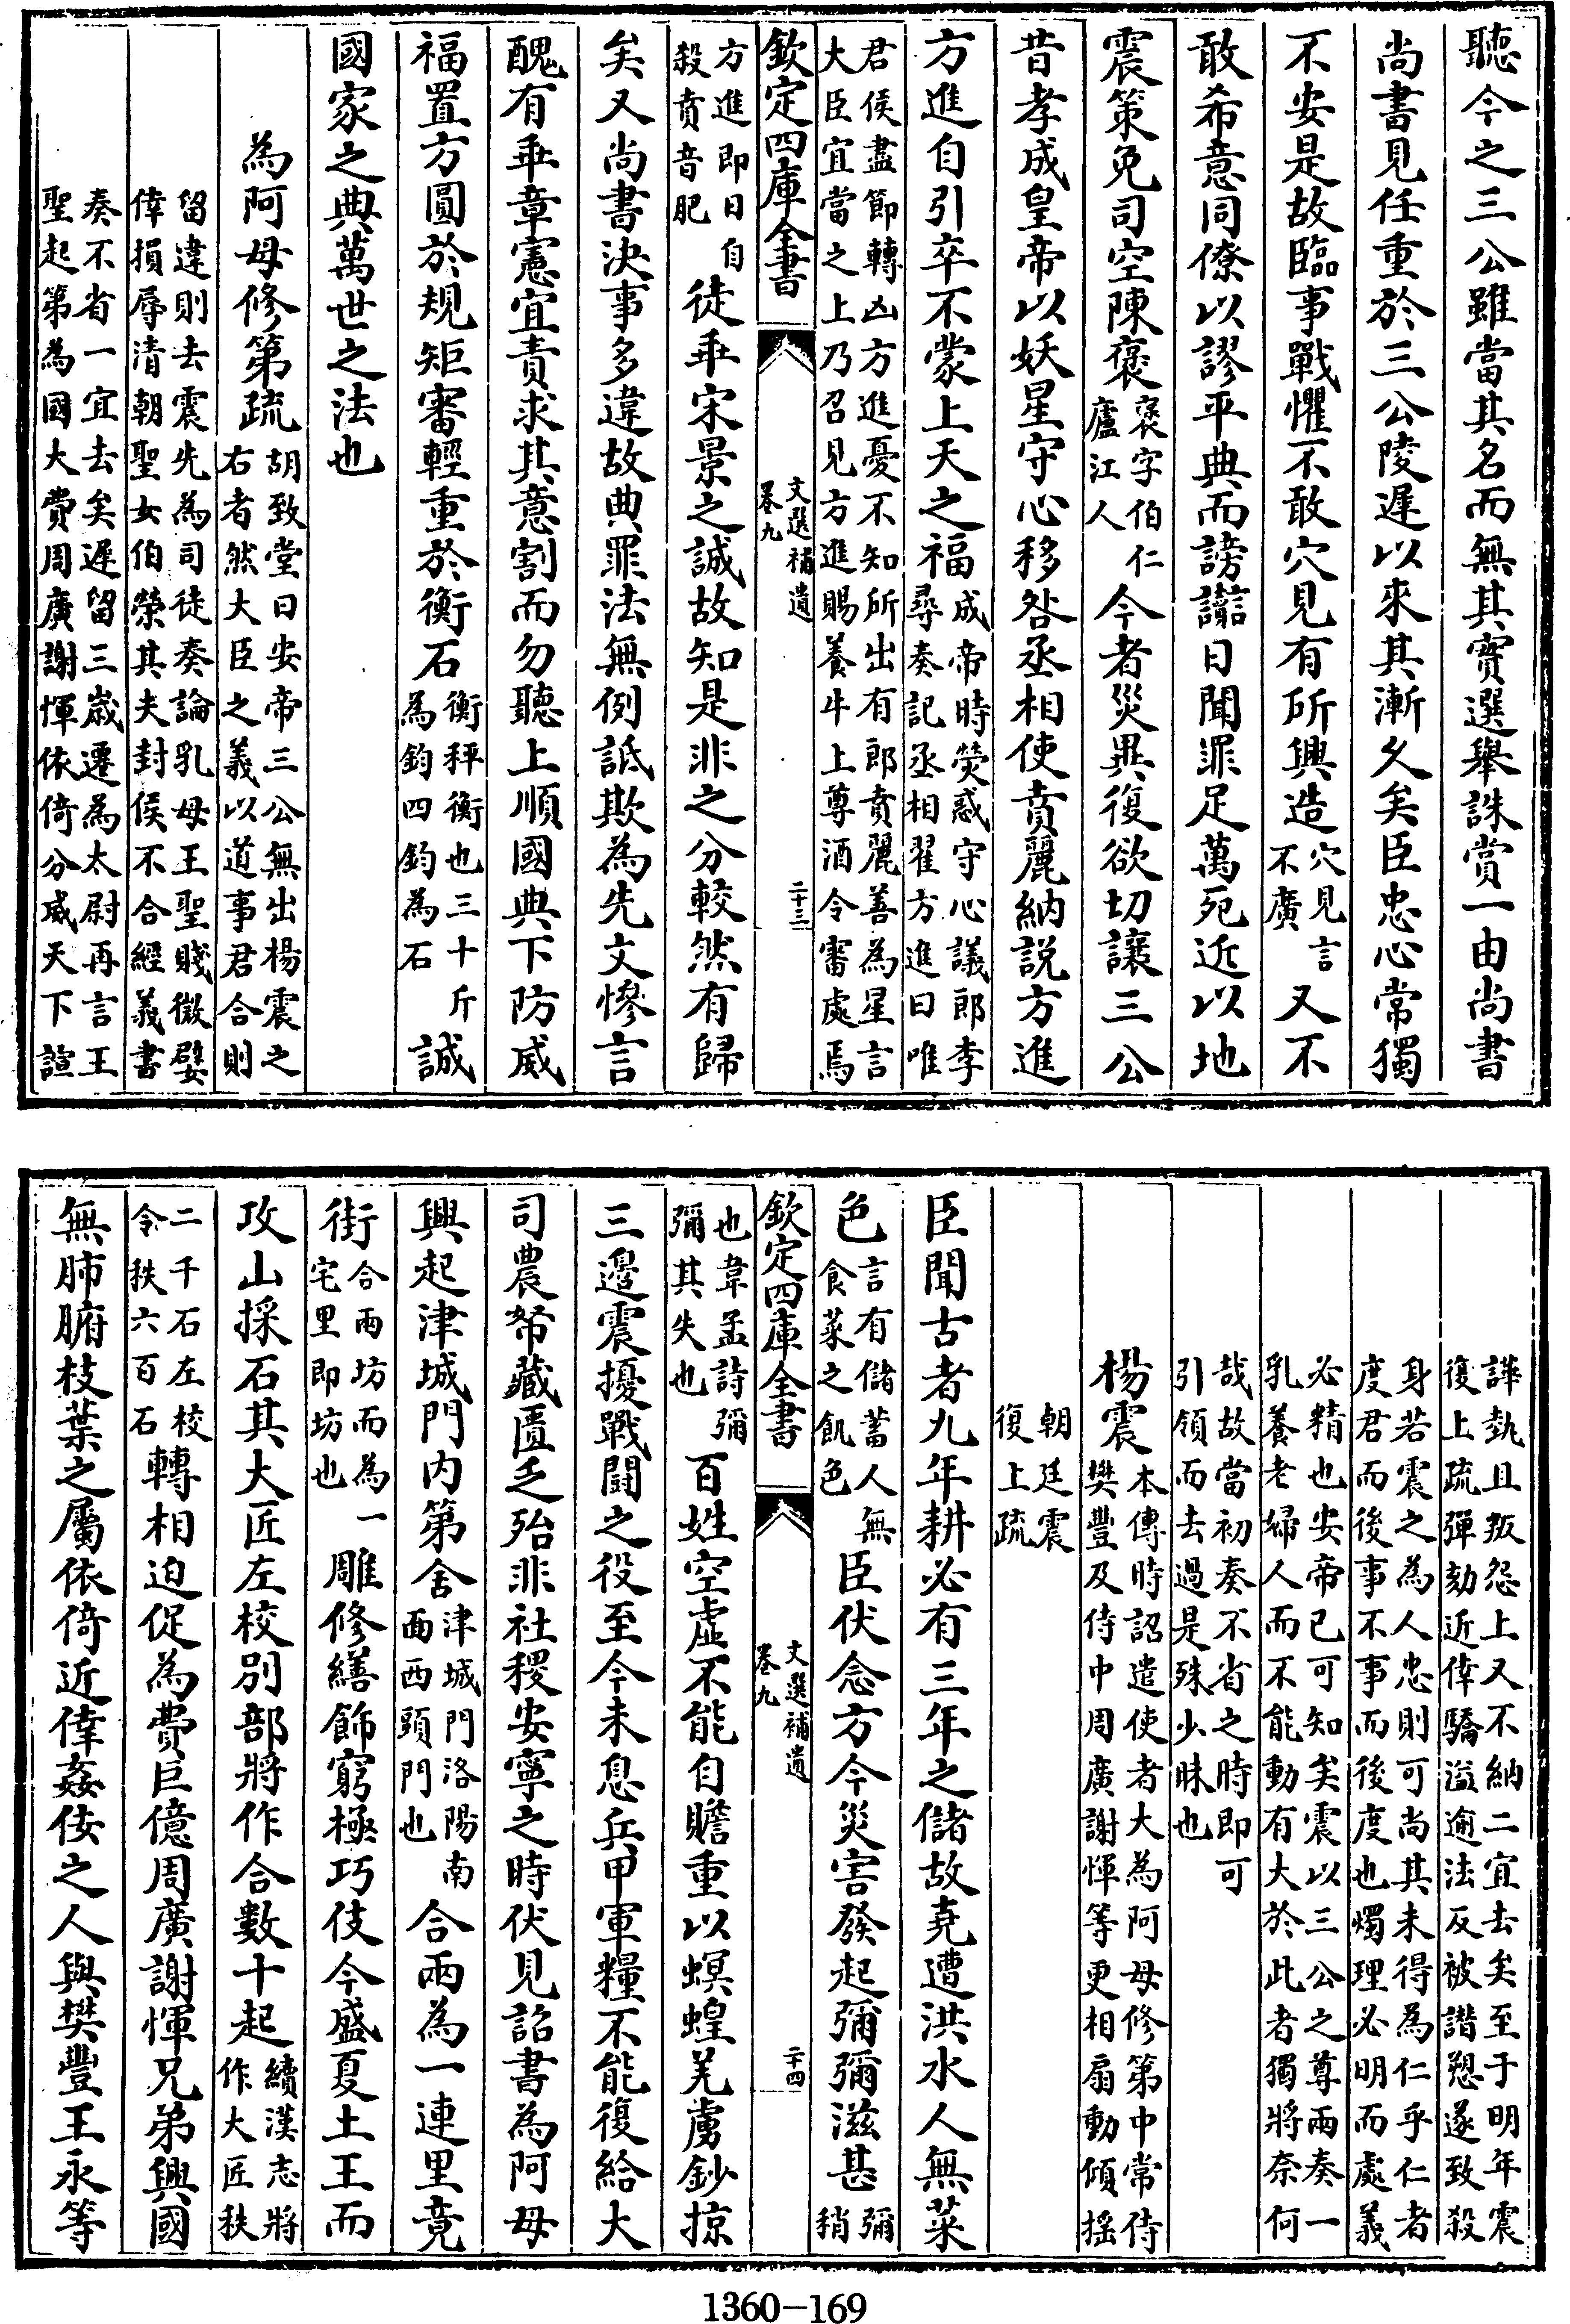 聽今之三公雖當其名而無其實選舉誅賞一由尚書
尚書見任重於三公陵遲以來其漸久矣臣忠心常獨
不安是故臨事戰懼不敢穴見有所興造穴見言不廣又不
敢希意同僚以謬平典而謗讟日聞罪足萬死近以地
震策免司空陳褒褒字伯仁廬江人今者災異復欲切讓三公
昔孝成皇帝以妖星守心移咎丞相使賁麗納説方進
方進自引卒不蒙上天之福成帝時熒惑守心議郎李尋奏記丞相翟方進曰唯
君侯盡節轉凶方進憂不知所出有郎賁麗善為星言大臣宜當之上乃召見方進賜養牛上尊酒令審處焉
欽定四庫全書 文選補遺卷九 二十三
方進即日自殺賁音肥徒乖宋景之誠故知是非之分較然有歸
矣又尚書決事多違故典罪法無例詆欺為先文慘言
醜有乖章憲宜責求其意割而勿聽上順國典下防威
福置方圓於規矩審輕重於衡石衡秤衡也三十斤為鈞四鈞為石誠
國家之典萬世之法也
為阿母修第疏胡致堂曰安帝三公無出楊震之右者然大臣之義以道事君合則
留違則去震先為司徒奏論乳母王聖賤微嬖倖損辱清朝聖女伯榮其夫封侯不合經義書
奏不省一宜去矣遲留三歲遷為太尉再言王聖起第為國大費周廣謝惲依倚分威天下諠
譁埶且叛怨上又不納二宜去矣至于明年震復上疏彈劾近倖驕溢逾法反被譖愬遂致殺
身若震之為人忠則可尚其未得為仁乎仁者度君而後事不事而後度也燭理必明而處義
必精也安帝已可知矣震以三公之尊兩奏一乳養老婦人而不能動有大於此者獨將奈何
哉故當初奏不省之時即可引領而去過是殊少昧也
楊震本傳時詔遣使者大為阿母修第中常侍樊豐及侍中周廣謝惲等更相扇動傾搖
朝廷震復上疏
臣聞古者九年耕必有三年之儲故堯遭洪水人無菜
色言有儲蓄人無食菜之飢色臣伏念方今災害發起彌彌滋甚彌稍
欽定四庫全書 文選補遺卷九 二十四
也韋孟詩彌彌其失也百姓空虛不能自贍重以螟蝗羌虜鈔掠
三邊震擾戰鬭之役至今未息兵甲軍糧不能復給大
司農帑藏匱乏殆非社稷安寧之時伏見詔書為阿母
興起津城門内第舍津城門洛陽南面西頭門也合兩為一連里竟
街合兩坊而為一宅里即坊也雕修繕飾窮極巧伎今盛夏土王而
攻山採石其大匠左校别部將作合數十起續漢志將作大匠秩
二千石左校令秩六百石轉相迫促為費巨億周廣謝惲兄弟興國
無肺腑枝葉之屬依倚近倖姦佞之人與樊豐王永等
1360-169